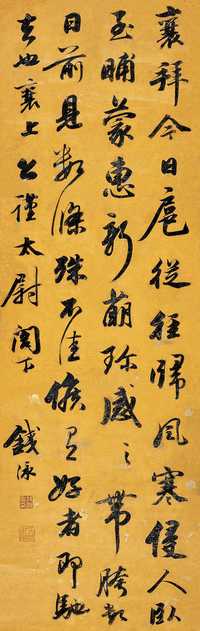 襄拜今日扈從徑歸風寒侵人臥
至晡蒙惠新萌珍感〻帶胯數
日前見數條殊不佳候有好者即馳
去也襄上公謹太尉閣下
錢泳